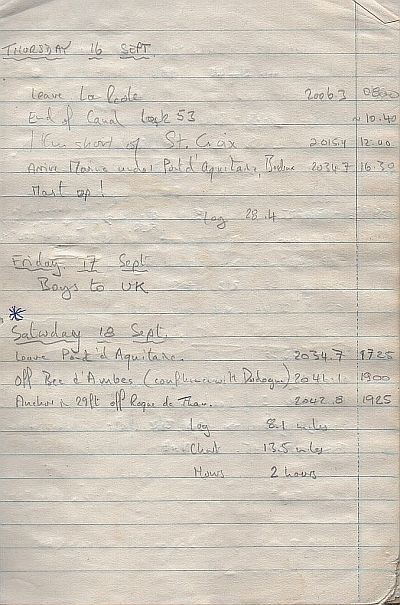 THURSDAY 16 SEPT.
Leave La Reole 2006.3 0800
End of Canal Lock 53 ~ 10.40
1 km short of St. Croix 2015.4 12.00
Arrive Marine under Pont d'Aquitaine, 2034.7 16.30
Mast up!
Log 28.4
Friday 17 Sept
Boys to UK
Saturday 18 Sept.
Leave Pont d'Aquitaine. 2034.7 1725
Off Bec d'Ambes (confluence with Dordogne) 2041.1 1900
Anchor in 29ft off Roque de Thau. 2042.8 1925
Log 8.1 miles
Chart 13.5 miles
Hours 2 hours